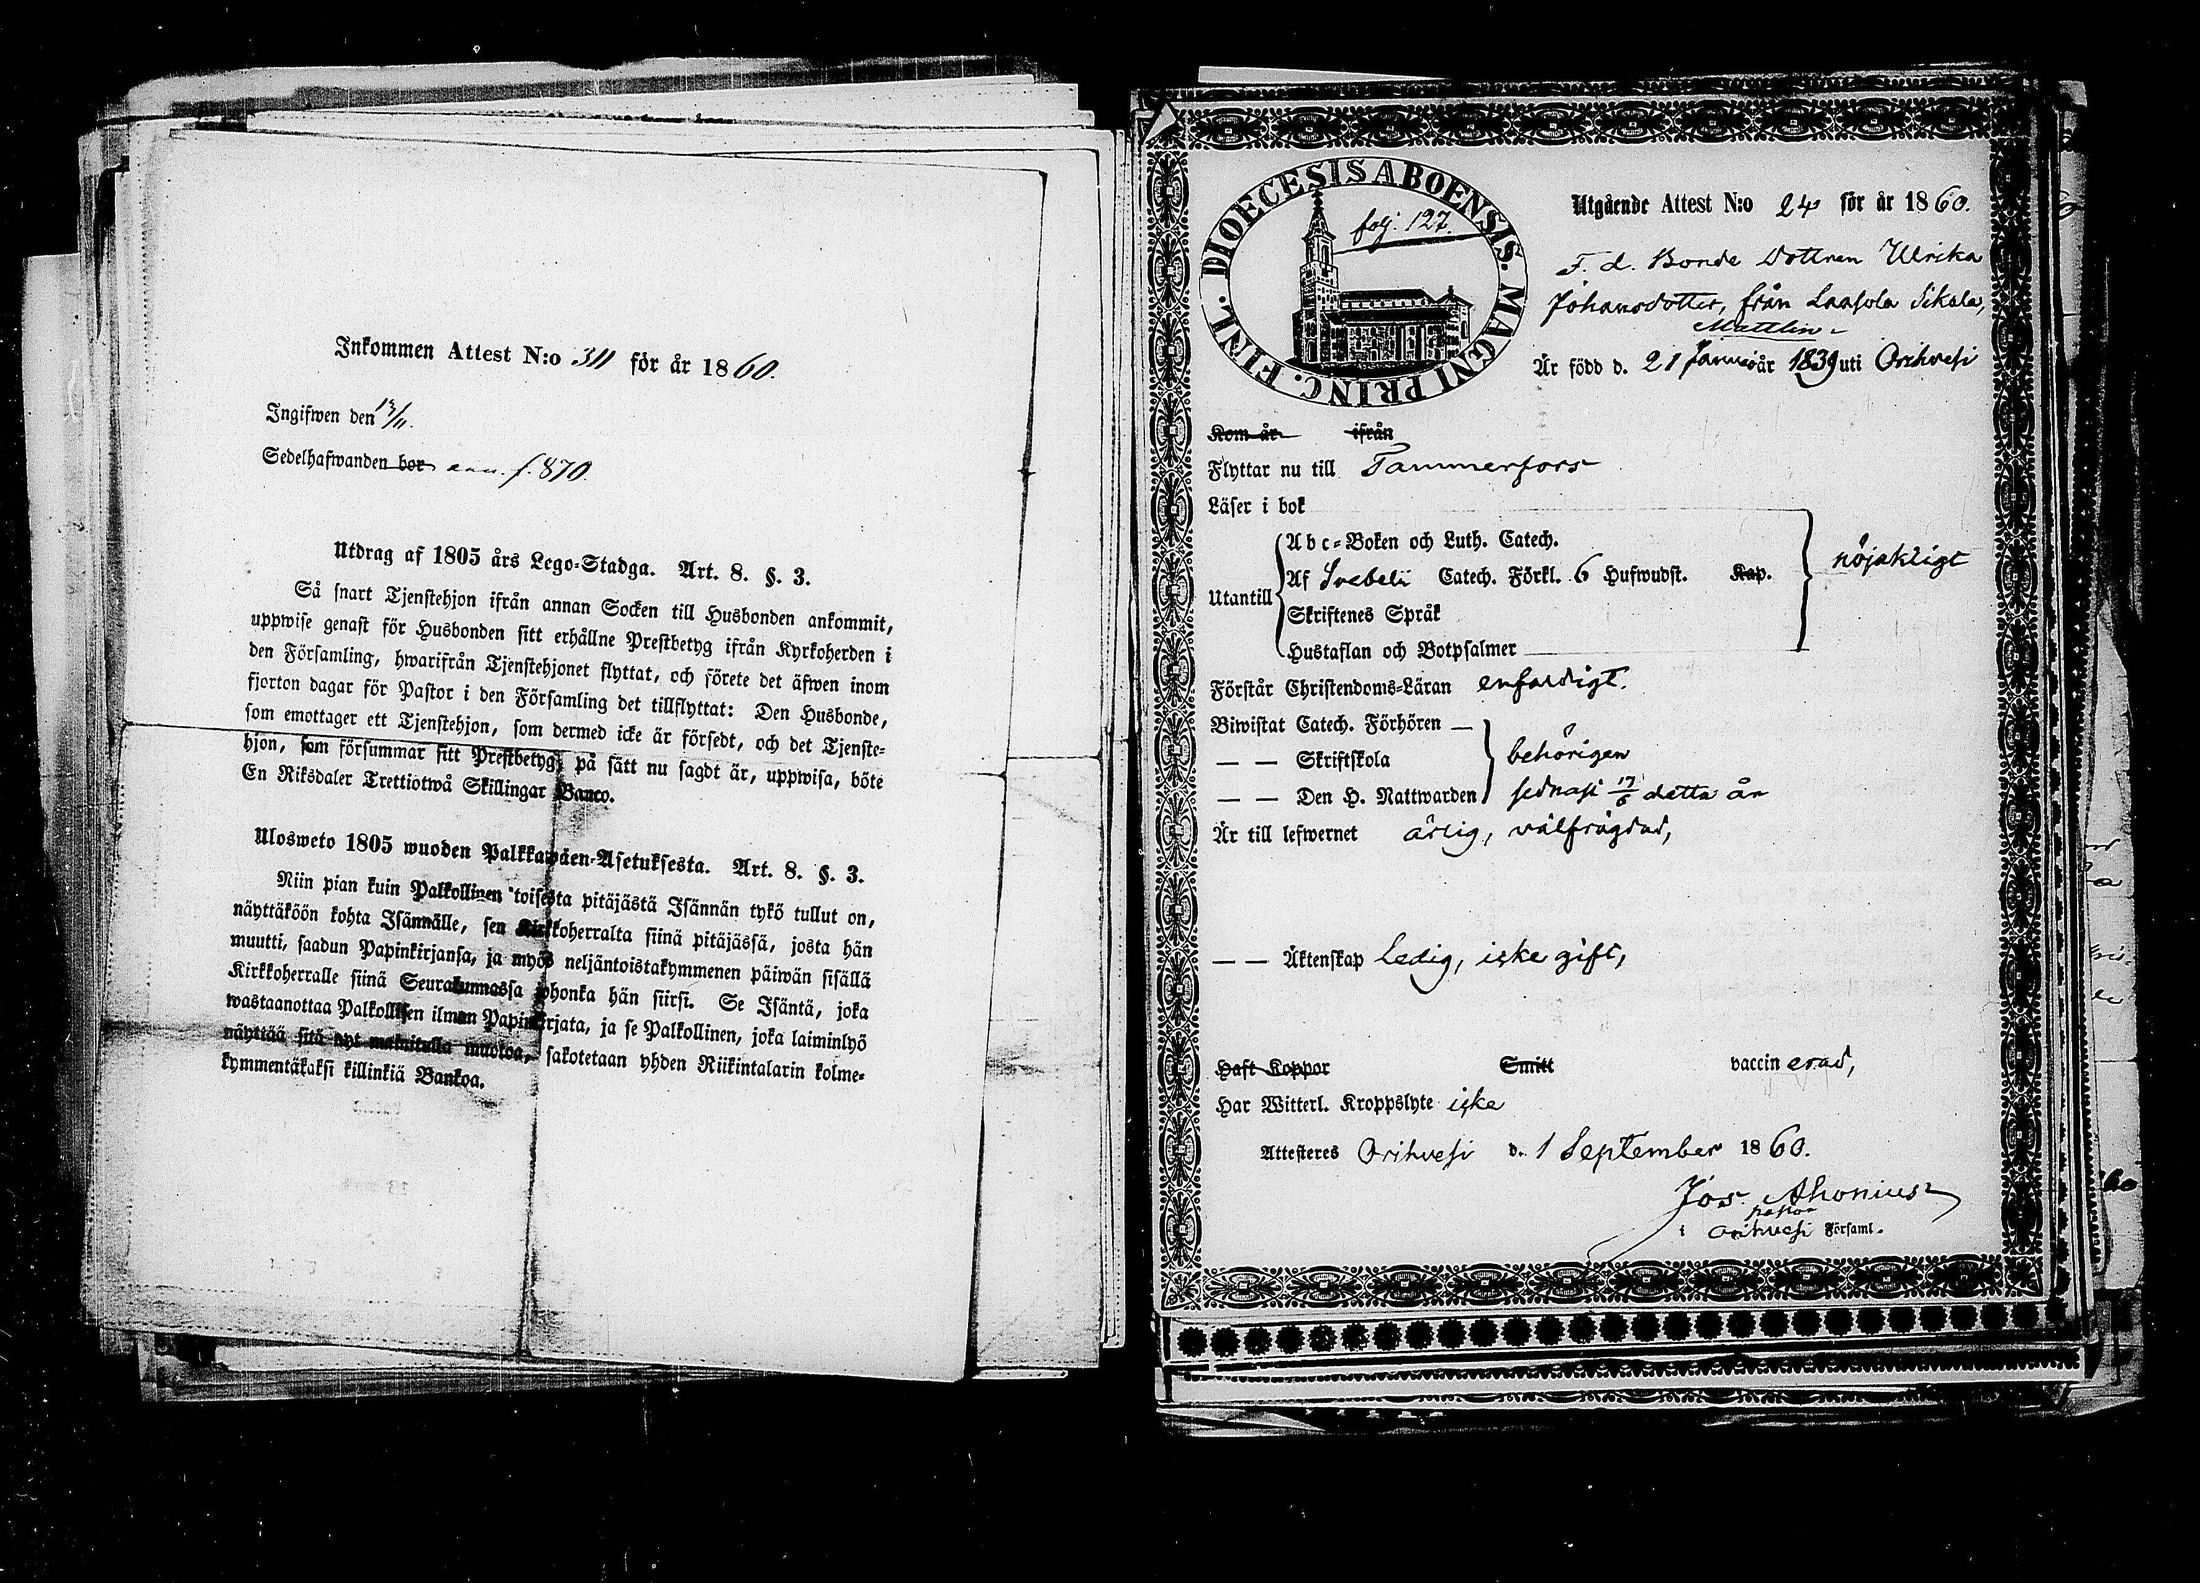 Inkommen Attest N:o 311 för år 1860.
Ingifwen den 13/11.
Sedelhafwanden bor ann. f. 870.
Utdrag af 1805 års Lego-Stadga. Art. 8. §. 3.
Så snart Tjenstehjon ifrån annan Socken till Husbonden ankommit,
uppwise genast för Husbonden sitt erhållne Prestbetyg ifrån Kyrkoherden i
den Församling, hwarifrån Tjenstehjonet flyttat, och förete det äfwen inom
fjorton dagar för Pastor i den Församling det tillflyttat: Den Husbonde,
som emottager ett Tjenstehjon, som dermed icke är försedt, och det Tjenste-
hjon, som försummar sitt Prestbetyg, på sätt nu sagdt är, uppwisa, böte
En Riksdaler Trettiotwå Skillingar Banco.
Ulosweto 1805 wuoden Palkkawäen-Asetuksesta. Art. 8. §. 3.
Niin pian kuin Palkollinen toisesta pitäjästä Isännän tykö tullut on,
näyttäköön kohta Isännälle, sen Kirkkoherralta siinä pitäjässä, josta hän
muutti, saadun Papinkirjansa, ja myös neljäntoistakymmenen päiwän sisällä
Kirkkoherralle siinä Seurakunnassa johonka hän siirsi. Se Isäntä, joka
wastaanottaa Palkollisen ilman Papinkirjata, ja se Palkollinen, joka laiminlyö
näyttää sitä nyt mainitulla muotoa, sakotetaan yhden Riikintalarin kolme-
kymmentäkaksi killinkiä Bankoa.
DIOECESIS ABOENSIS. MAGNI PRINC. FINL.
folj. 127.
Utgående Attest N:o 24 för år 1860.
F. d. Bonde Dottren Ulrika
Johansdotter, från Laasola Sikala,
Mattlin
Är född d. 21 Januari år 1839 uti Orihvesi
Kom år ifrån
Flyttar nu till Tammerfors
Läser i bok
Utantill
Abc-Boken och Luth. Catech.
Af Svebeli Catech. Förkl. 6 Hufwudst. Kap.
Skriftenes Språk
Hustaflan och Botpsalmer
nöjakligt
Förstår Christendoms-Läran enfardigt.
Biwistat Catech. Förhören —
— — Skriftskola behörigen
— — Den H. Nattwarden sednast 17/6 detta år
Är till lefwernet ärlig, välfrägdad,
— — Äktenskap Ledig, icke gift,
Haft Koppor Smitt vaccinerad,
Har Witterl. Kroppslyte icke
Attesteres Orihvesi d. 1 September 1860.
Jos. Ahonius
pastor
i Orihvesi Församl.